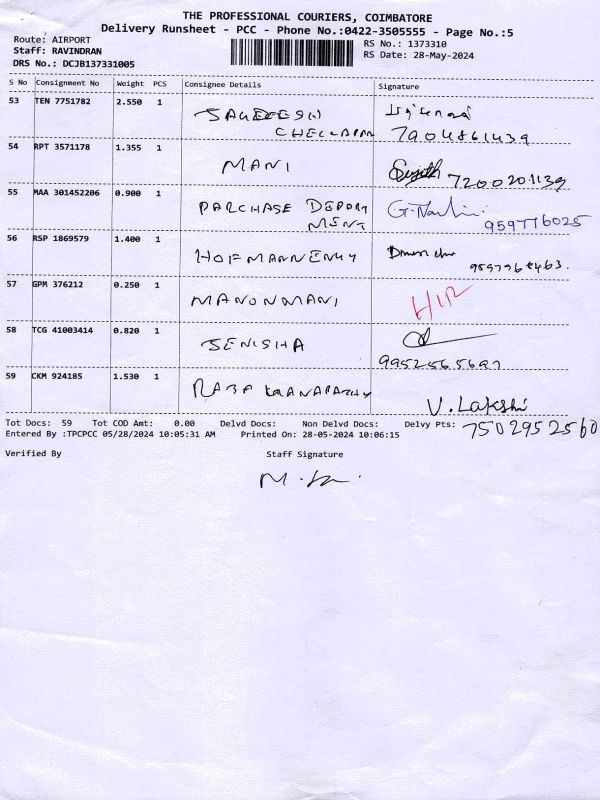 THE PROFESSIONAL COURIERS, COIMBATORE
Delivery Runsheet - PCC - Phone No.:0422-3505555 - Page No.:5
Route: AIRPORT
Staff: RAVINDRAN
DRS No.: DCJB137331005
RS No.: 1373310
RS Date: 28-May-2024
S No Consignment No Weight PCS Consignee Details Signature
53 TEN 7751782 2.550 1
CHELLAPAN 7904861439
54 RPT 3571178 1.355 1 MANI
7200201139
55 MAA 301452206 0.900 1 PARCHASE DEPORT
MENT 959776025
56 RSP 1869579 1.400 1
57 GPM 376212 0.250 1 MANONMANI
58 TCG 41003414 0.820 1 JENISHA
9952565697
59 CKM 924185 1.530 1
V. Lakshi
Tot Docs: 59 Tot COD Amt: 0.00 Delvd Docs: Non Delvd Docs: Delvy Pts: 7502952560
Entered By :TPCPCC 05/28/2024 10:05:31 AM Printed On: 28-05-2024 10:06:15
Verified By Staff Signature